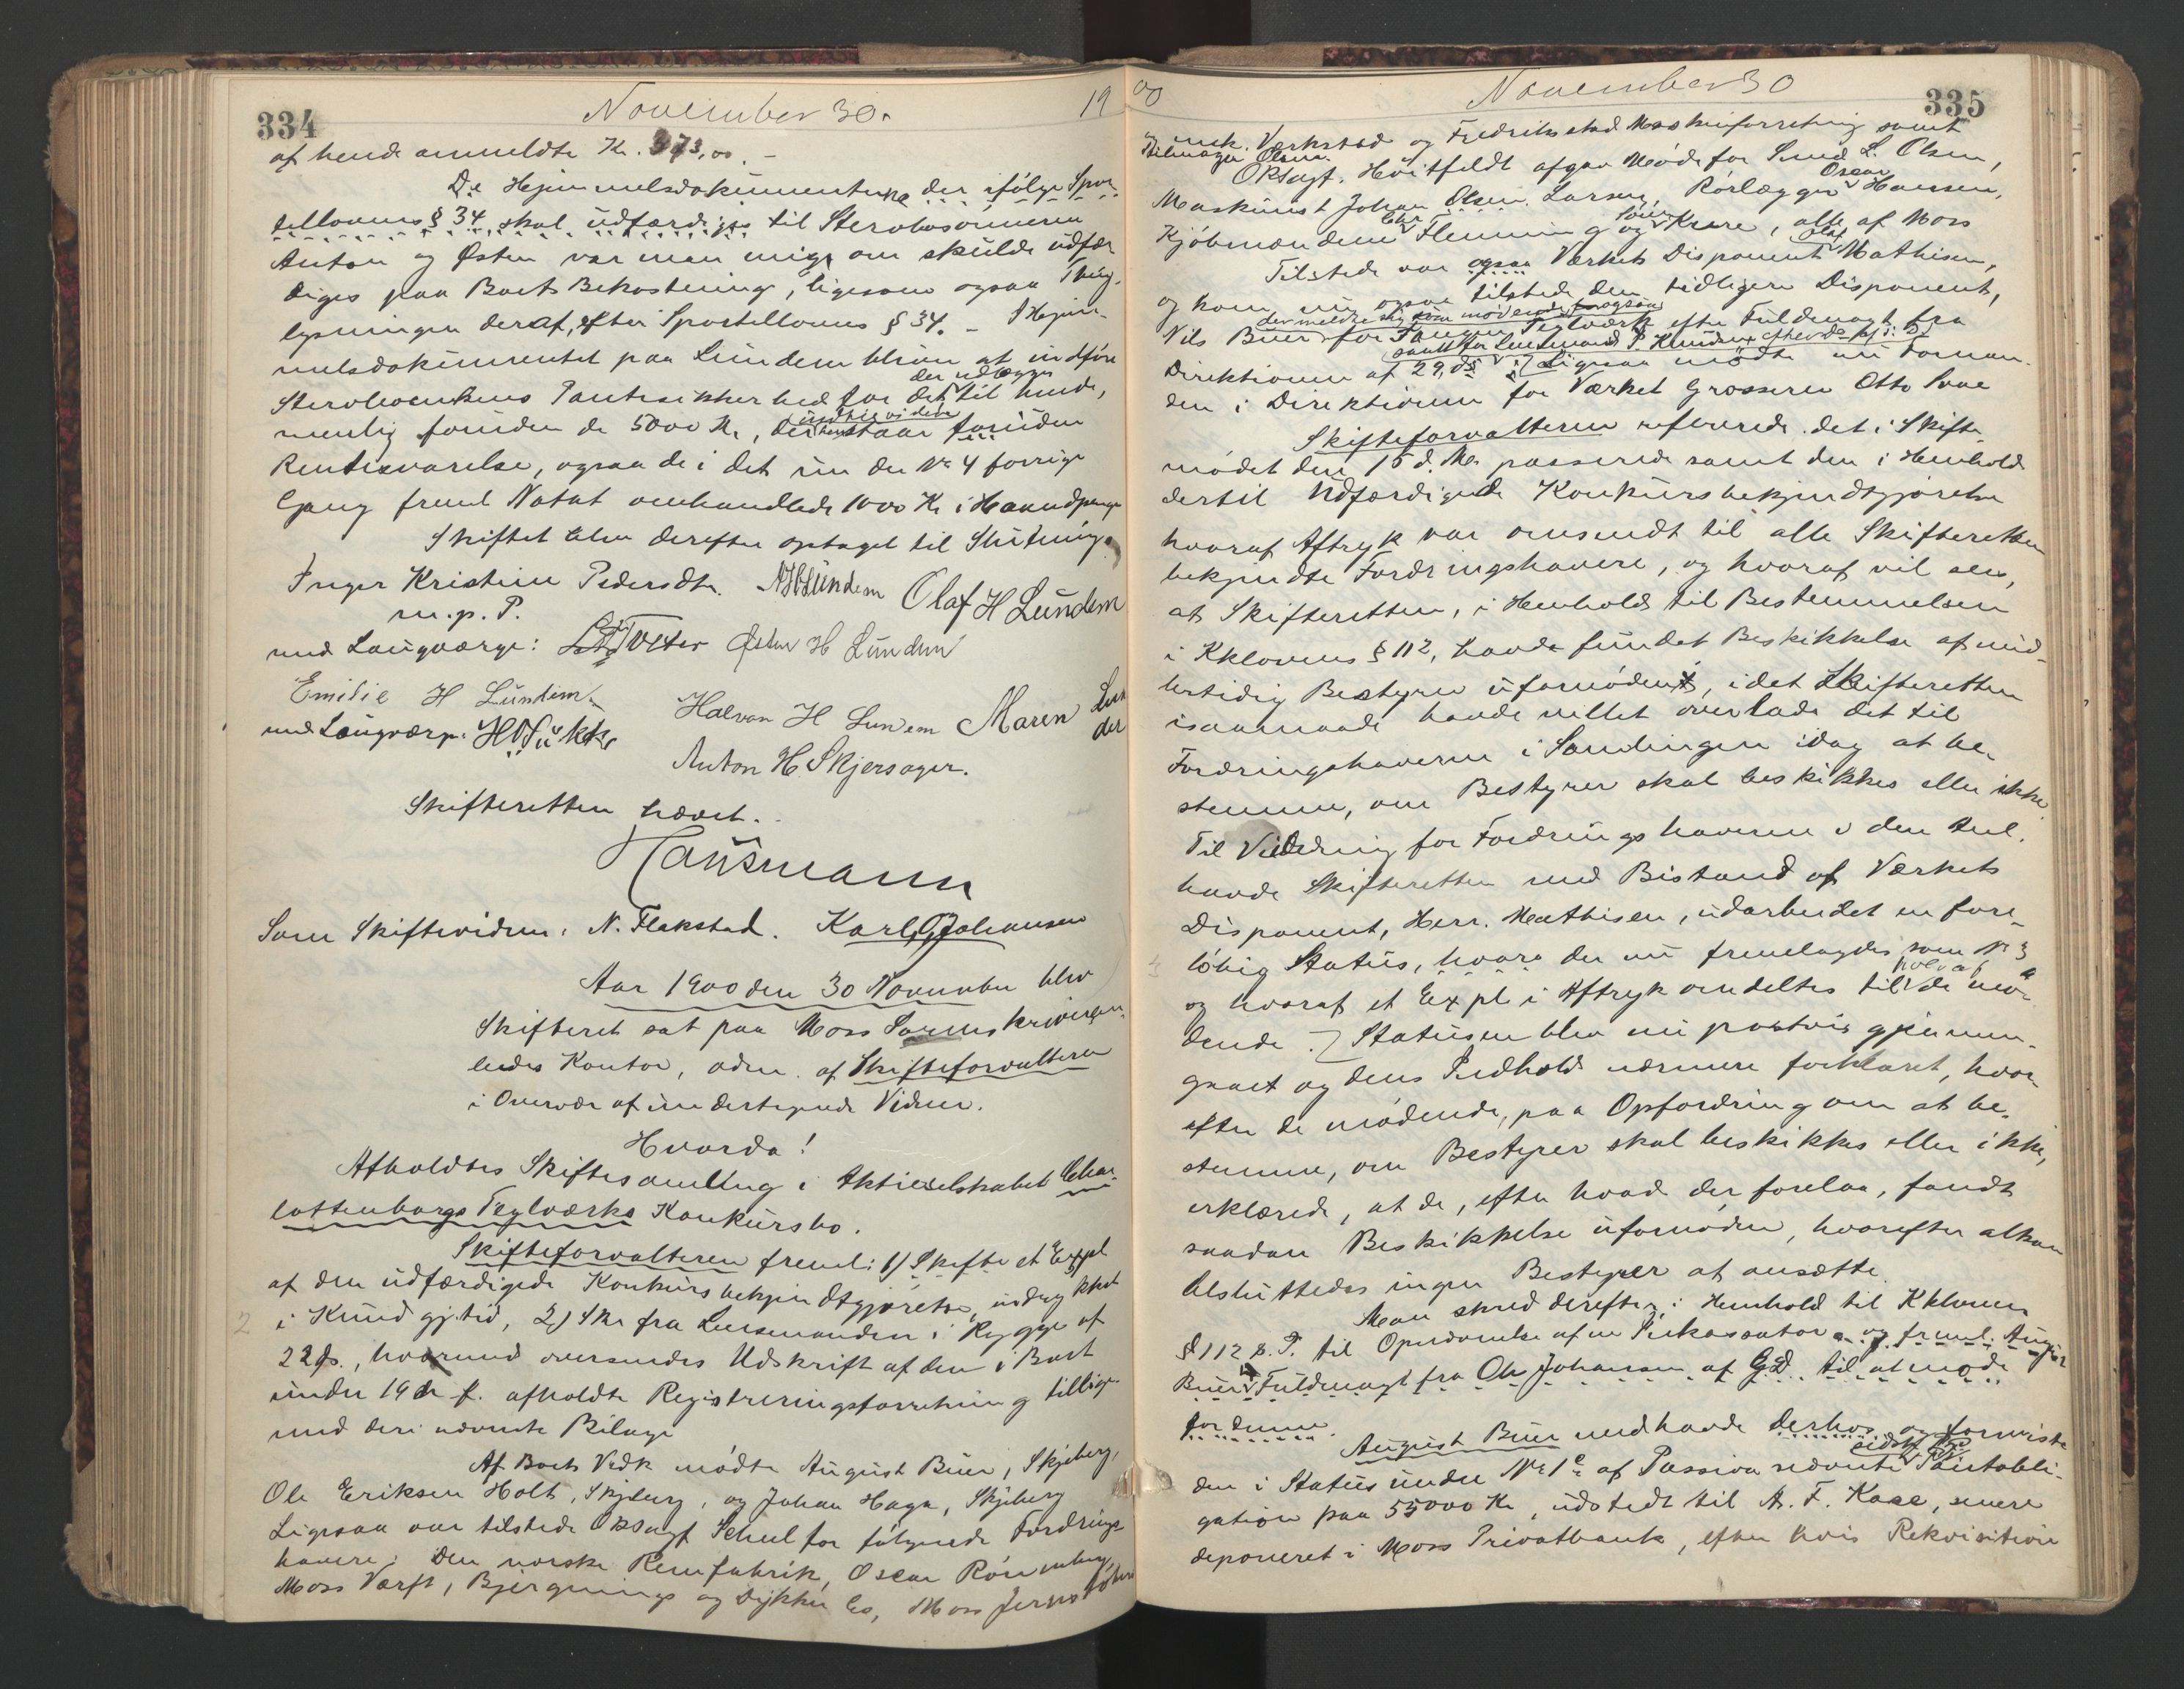 334
November 30.
19
af hende anmeldte Kr. 373,00. –
De Hjemmelsdokumenterne der ifölge Spor-
tellovens § 34 skal udfærdiges til Stervbosönnerne
Anton og Østen var man enige om skulde udfær-
diges paa Boets Bekostning, ligesom ogsaa Thing-
lysningen deraf, efter Sportellovens § 34. – I Hjem-
melsdokumentet paa Lundem bliver at indföre
der udlægges
Stervboenkens Pantesikkerhed for det til hende,
nemlig foruden de 5000 Kr, der henstaar foruden
Rentesvarelse, ogsaa de i det under No 4 forrige
Gang freml Notat omhandlede 1000 Kr i Haandpenge
Skiftet blev derefter optaget til Slutning.
Inger Kristine Pedersdtr. NHLundem Olaf H Lundem
m. p. P.
med Laugværge: Østen H Lundem
Emilie H Lundem
med Laugværge: Halvor H Lundem Maren Lun
dem
Anton H. Skjersager.
Skifteretten hævet.
Hausmann
Som Skiftevidner: N. Flakstad. Karl G Johansen
Aar 1900 den 30 November blev
Skifteret sat paa Moss Sorenskriverem-
bedes Kontor, adm. af Skifteforvalteren
i Overvær af undertegnede Vidner.
Hvorda!
Afholdtes Skiftesamling i Aktieselskabet Char-
lottenborgs Teglværks Konkursbo.
Skifteforvalteren freml: 1) Skifte et Expl
af den udfærdigede Konkursbekjendtgjörelse, indrykket
2
i Kundgj.tid, 2) Skr fra Lensmanden i Rygge af
22 ds., hvormed oversendes Udskrift af den i Boet
under 19 d. s. afholdte Registreringsforretning tillige
med deri nævnte Bilage
Af Boets Vedk mödte August Buer, Skjeberg,
Ole Eriksen Holt, Skjeberg, og Johan Haga, Skjeberg
Ligesaa var tilstede ORSagf Scheel for fölgende Fordrings-
havere: Den norske Remfabrik, Oscar Rönneberg,
Moss Værft, Bjergnings og Dykker Co, Moss Jernstöberi
00
November 30
335
og mek. Værksted og Fredriksstad Maskinforretning samt
Hjulmager Olsen.
ORSagf. Hvitfeldt afgav Möde for Smed L. Olsen,
Oscar
Maskinist Johan Olsen Larsen, Rörlægger Hansen,
Chr. Sören
Kjöbmændene Flemming og Krare, alle af Moss
Olaf
Tilstede var ogsaa Værkets Disponent Mathisen,
og kom nu ogsaa tilstede den tidligere Disponent,
der meldte sig som mödende ogsaa
Nils Buer for Teglværk efter Fuldmagt fra
samt for Lensmand P. Knudsen efter do af d. D.
Direktionen af 29. ds Ligesaa mödte nu Forman-
den i Direktionen for Værket Grosserer Otto
Skifteforvalteren refererede det i Skifte-
mödet den 15 d. M. passerede samt den i Henhold
dertil udfærdigede Konkursbekjendtgjörelse
hvoraf Aftryk var omsendt til alle Skifteretten
bekjendte Fordringshavere, og hvoraf vil sees,
at Skifteretten, i Henhold til Bestemmelsen
i Kklovens § 112, havde fundet Beskikkelse af mid-
lertidig Bestyrer ufornödent, idet Skifteretten
isaamaade havde villet overlade det til
Fordringshaverne i Samlingen idag at be-
stemme, om Bestyrer skal beskikkes eller ikke
Til Veiledning for Fordringshaverne i den Anl.
havde Skifteretten med Bistand af Værkets
Disponent, Herr. Mathisen, udarbeidet en fore-
löbig Status, hvoraf der nu fremlagdes som No 3
hver af
og hvoraf et Expl i Aftryk omdeltes til de mö-
dende. Statusen blev nu postvis gjennem-
gaaet og dens Indhold nærmere forklaret, hvor-
efter de mödende, paa Opfordring om at be-
stemme, om Bestyrer skal beskikkes eller ikke,
erklærede, at de, efter hvad der forelaa, fandt
saadan Beskikkelse ufornöden, hvorefter altsaa
besluttedes ingen Bestyrer at ansætte.
Man skred derefter, i Henhold til Kkloven
§ 112 s. P. til Opnævnelse af en Inkassator, og freml. August
Buer Fuldmagt fra Ole Johansen af G. D. til at möde
for denne.
August Buer medhavde derhos og foreviste
sidst
den i Status under No 1 c af Passiva nævnte Pantobli-
gation paa 55000 Kr, udstedt til A. F. Kaae, senere
deponeret i Moss Privatbank, efter hvis Rekvisition